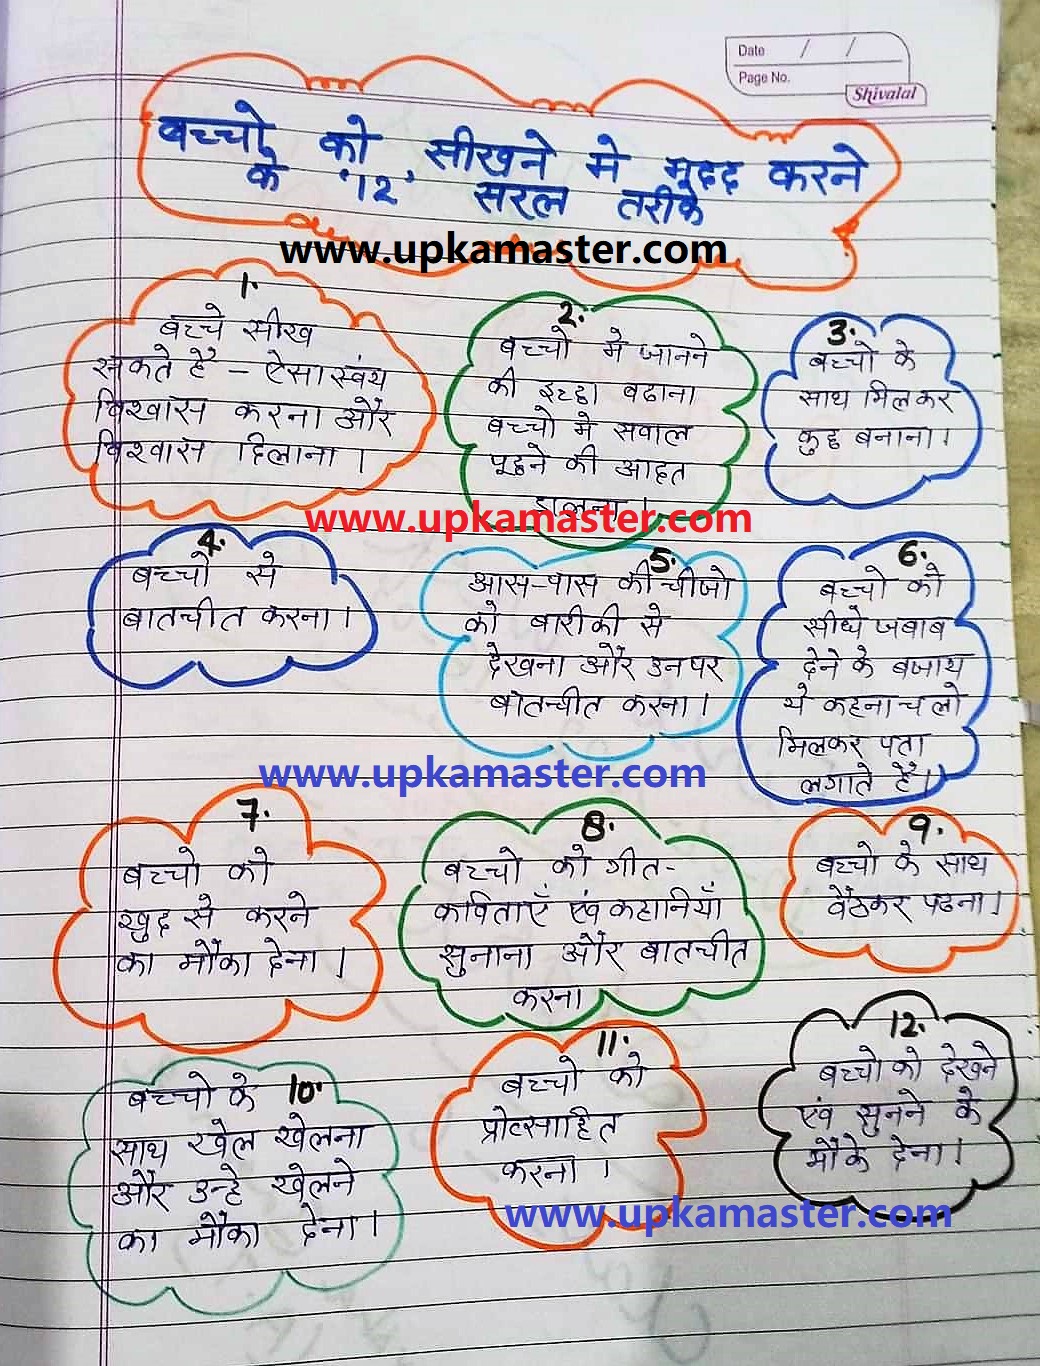 Date / /
Page No.
Shivalal
बच्चो को सीखने मे मदद करने
के '12' सरल तरीके
www.upkamaster.com
1.
बच्चे सीख
सकते हैं - ऐसा स्वंय
विश्वास करना और
विश्वास दिलाना।
2.
बच्चो में जानने
की इच्छा बढाना
बच्चो मे सवाल
पूछने की आदत
डालना।
3.
बच्चो के
साथ मिलकर
कुछ बनाना।
www.upkamaster.com
4.
बच्चों से
बातचीत करना।
5.
आस-पास की चीजो
को बारीकी से
देखना और उन पर
बातचीत करना।
6.
बच्चो को
सीधे जबाब
देने के बजाय
ये कहना चलो
मिलकर पता
लगाते हैं।
www.upkamaster.com
7.
बच्चो को
खुद से करने
का मौका देना।
8.
बच्चो को गीत-
कविताएँ एंव कहानियाँ
सुनाना और बातचीत
करना
9.
बच्चो के साथ
बैठकर पढना।
10.
बच्चो के
साथ खेल खेलना
और उन्हे खेलने
का मौका देना।
11.
बच्चो को
प्रोत्साहित
करना।
12.
बच्चो को देखने
एंव सुनने के
मौके देना।
www.upkamaster.com